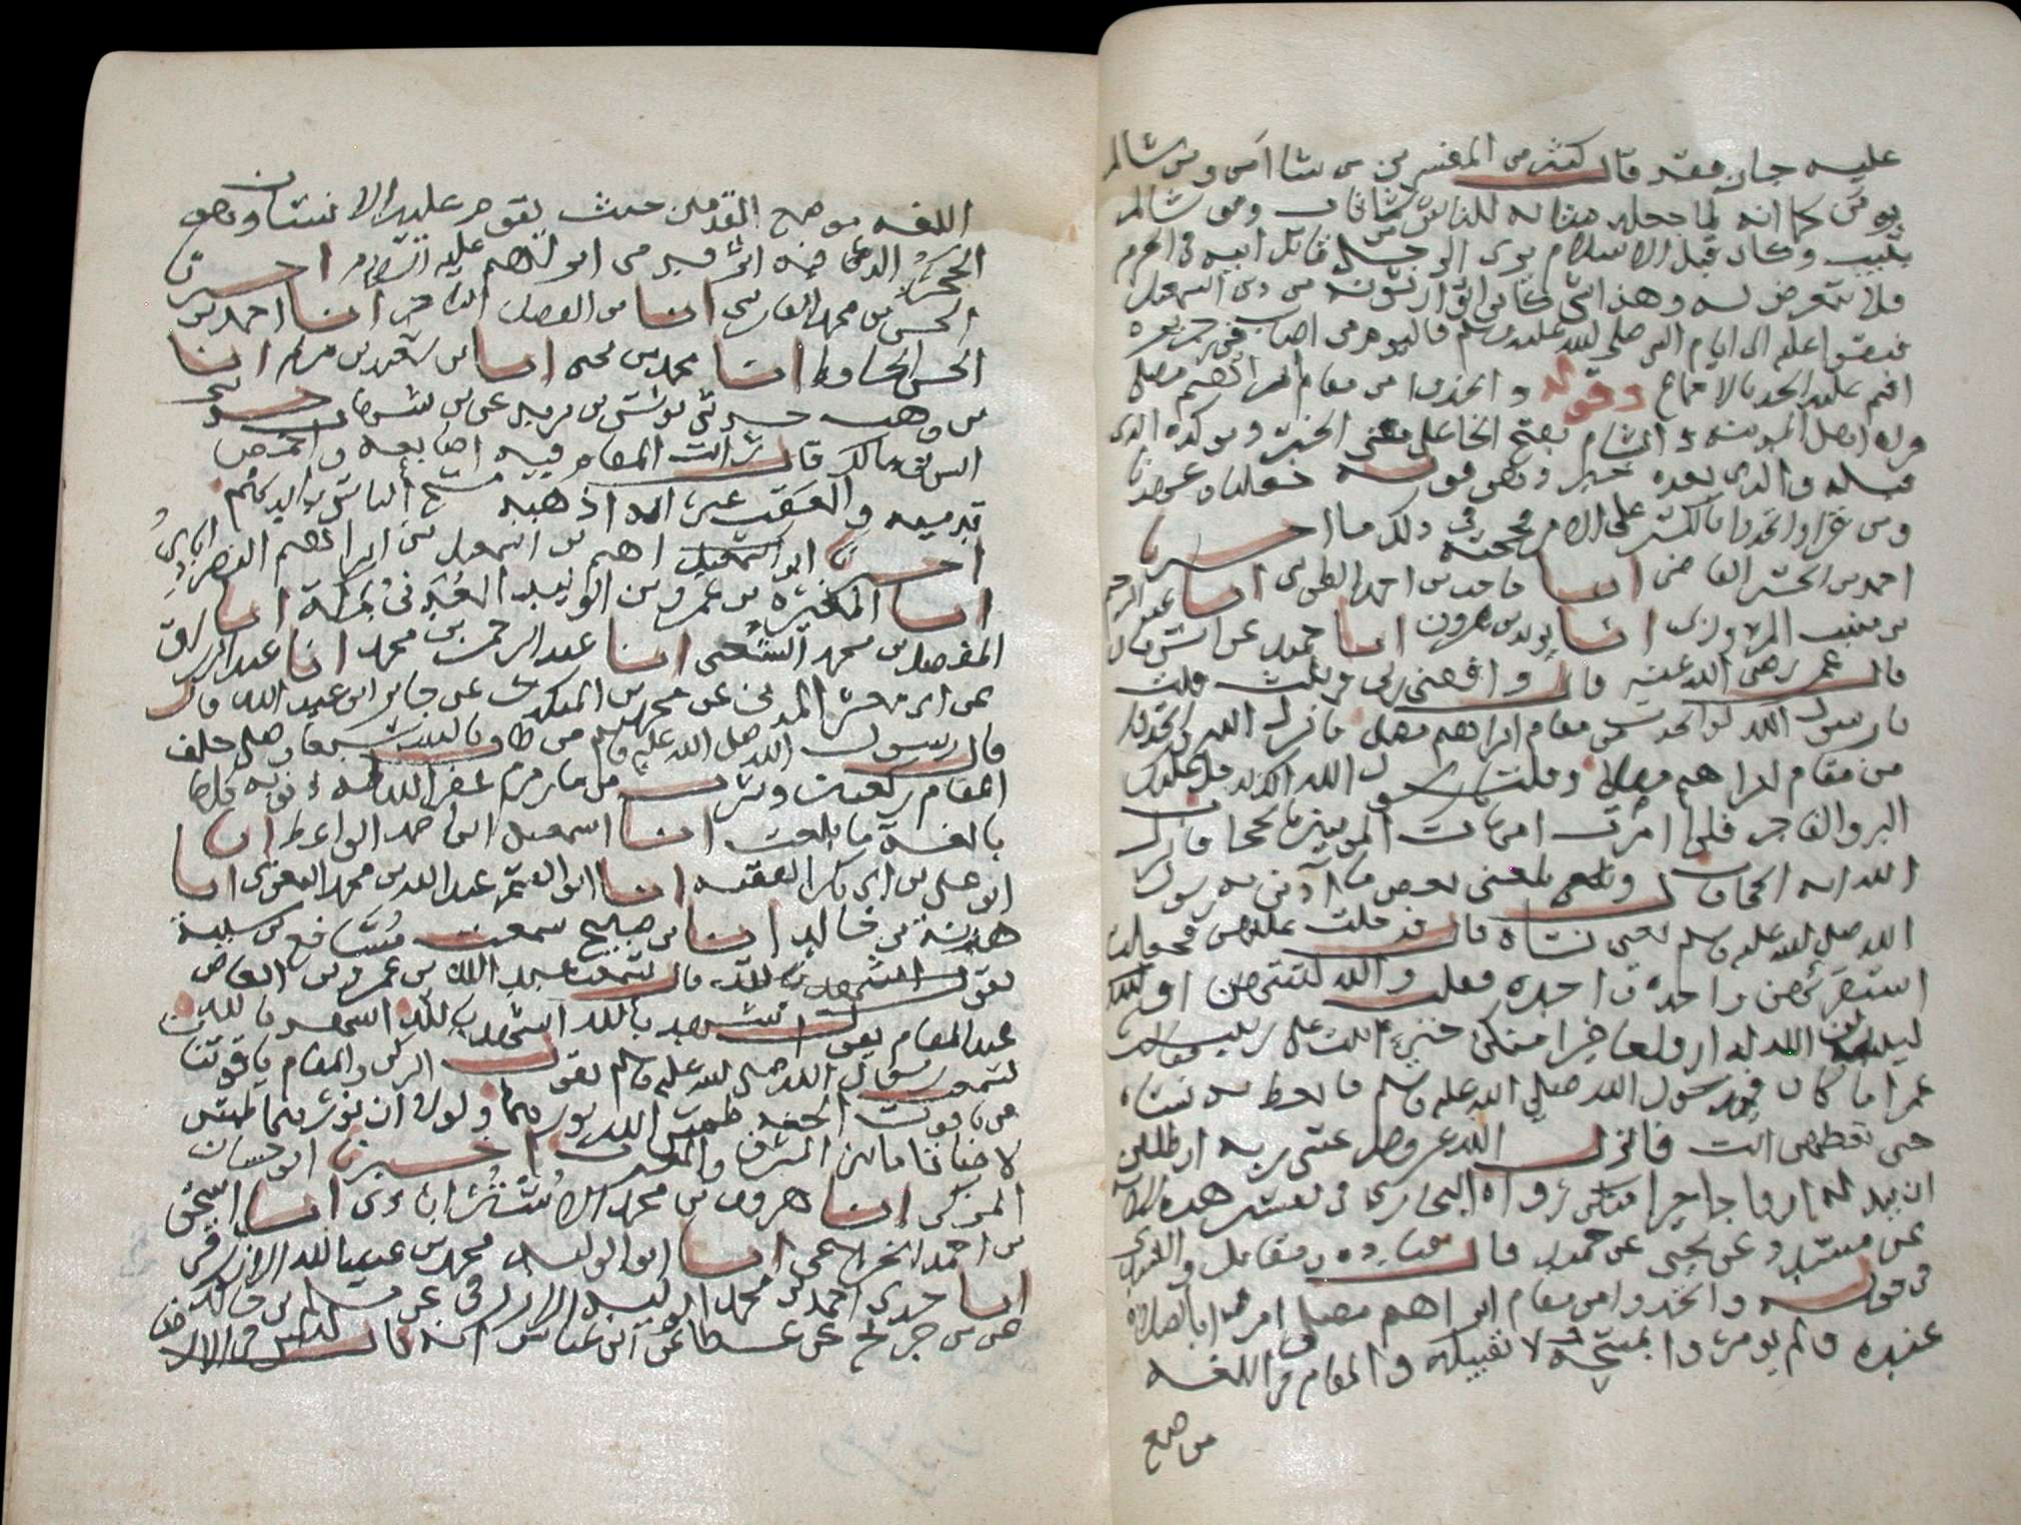 عليه جان فقد قال كثير من المفسرين من شا امن ومن شا لم
يومن كما انه لما جعله مثابة للناس من شا ثاب ومن شا لم
يثب وكان قبل الاسلام يرى الرجل قاتل ابيه في الحرم
فلا يتعرض له وهذا شي كانوا توارثوه من دين اسمعيل
فبقوا عليه الى ايام النبي صلى الله عليه وسلم فاليوم من اصاب فيه جريره
اقيم عليه الحد بالاجماع وقوله واتخذوا من مقام ابراهيم مصلى
قراه اهل المدينة والشام بفتح الخا على معنى الخبر ويوكده الذي
قبله والذي بعده خبر وهو قوله جعلنا وعهدنا
ومن قرا واتخذوا بالكسر على الامر فحجته في ذلك ما اخبرنا
احمد بن الحسن القاضي انا حاجب بن احمد الطوسي انا عبد الرحيم
بن منيب المروزي انا يزيد بن هرون انا حميد عن انس قال
قال عمر رضي الله عنه قال وافقني ربي في ثلث قلت
يا رسول الله لو اتخذت من مقام ابراهيم مصلى فانزل الله واتخذوا
من مقام ابراهيم مصلى وقلت يا رسول الله انه يدخل عليك
البر والفاجر فلو امرت امهات المومنين بالحجاب فانزل
الله اية الحجاب قال وبلغني بعض ما اذين به رسول
الله صلى الله عليه وسلم يعني نساه قال فدخلت عليهن فجعلت
استقريهن واحدة واحدة فقلت والله لتنتهن او
ليبدلن الله له ازواجا خيرا منكن حتى اتيت على زينب فقالت
يا عمر اما كان في رسول الله صلى الله عليه وسلم ما يعظ به نساه
حتى تعظهن انت فانزل الله عز وجل عسى ربه ان طلقكن
ان يبدله ازواجا خيرا منكن رواه البخاري في تفسير هذه الاية
عن مسدد عن يحيى عن حميد قال قتادة ومقاتل والسدي
في قوله واتخذوا من مقام ابراهيم مصلى امروا بالصلاة
عنده ولم يومروا بمسحه ولا تقبيله والمقام في اللغه
موضع
اللغه موضع القدمين حيث يقوم عليه الانسان وهو
الحجر الذي فيه اثر قدمي ابراهيم عليه السلام اخبرنا
الحسن بن محمد الفارسي انا بن الفضل التاجر انا احمد بن
الحسن الحافظ انا محمد بن يحيى انا بن سعيد بن مريم انا
بن وهب حدثني يونس بن يزيد عن بن شهاب حدثني
انس بن مالك قال رايت المقام فيه اصابعه واخمص
قدميه والعقب غير انه اذهبه مسح الناس بايديهم
اخبرنا ابو ابراهيم اسمعيل بن ابراهيم النصراباذي
انا المغيرة بن عمرو بن الوليد العدني بمكة انا
المفضل بن محمد الشعبي انا عبد الرحمن بن محمد انا عبد الرزاق
عن ابي معشر المدني عن محمد بن المنكدر عن جابر ابن عبد الله قال
قال رسول الله صلى الله عليه وسلم من طاف بالبيت سبعا وصلى خلف
المقام ركعتين وشرب من ما زمزم غفر الله له ذنوبه كلها
بالغة ما بلغت انا اسمعيل ابن احمد الواعظ انا
ابو علي بن ابي بكر الفقيه انا ابو القسم عبد الله بن محمد البغوي انا
هدبة بن خالد انا بن صبيح سمعت مسافع بن شيبة
يقول اشهد بالله قال سمعت عبد الله بن عمرو بن العاص
عند المقام يقول اشهد بالله اشهد بالله اشهد بالله
لسمعت رسول الله صلى الله عليه وسلم يقول الركن والمقام ياقوتتان
من ياقوت الجنة طمس الله نورهما ولولا ان نورهما طمس
لاضاتا ما بين المشرق والمغرب اخبرنا ابو حسان
المزكي انا هرون بن محمد الاستراباذي انا اسحق
بن احمد الخزاعي انا ابو الوليد محمد بن عبد الله الازرقي
انا جدي احمد بن محمد ابو الوليد الازرقي عن مسلم بن خالد
عن بن جريج عن عطا عن ابن عباس انه قال ليس في الارض